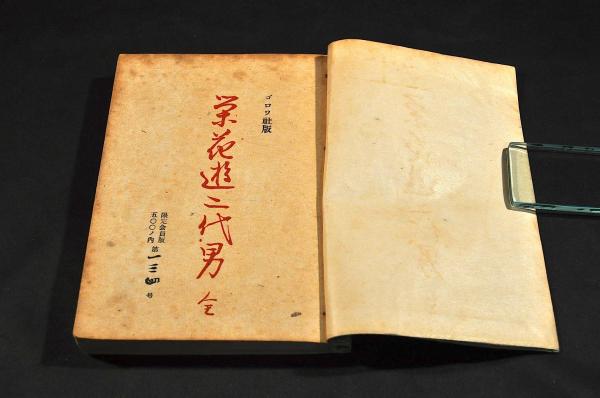 ゴロワ社版
栄花遊二代男 全
限定会員版
五〇〇ノ内 第一三四号